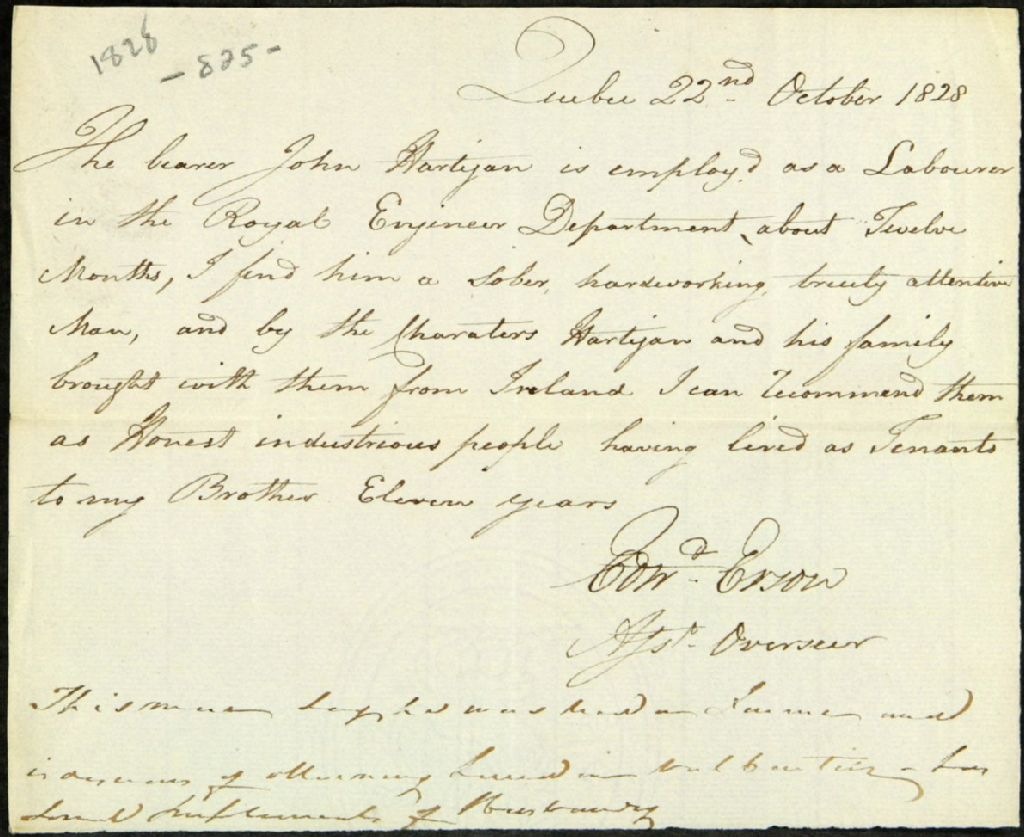 1828
- 825 -
Quebec 22nd October 1828
The bearer John Hartigan is employ'd as a Labourer
in the Royal Engineer Department, about Twelve
Months, I find him a Sober, hardworking, truely attentive
Man, and by the Charaters Hartigan and his family
brought with them from Ireland I can recommend them
as Honest industrious people having lived as Tenants
to my Brother Eleven years
Edwd. Erson
Asst. Overseer
This man says he was bred a Farmer and
is desirous of obtaining Land in has
some Implements of Husbandry